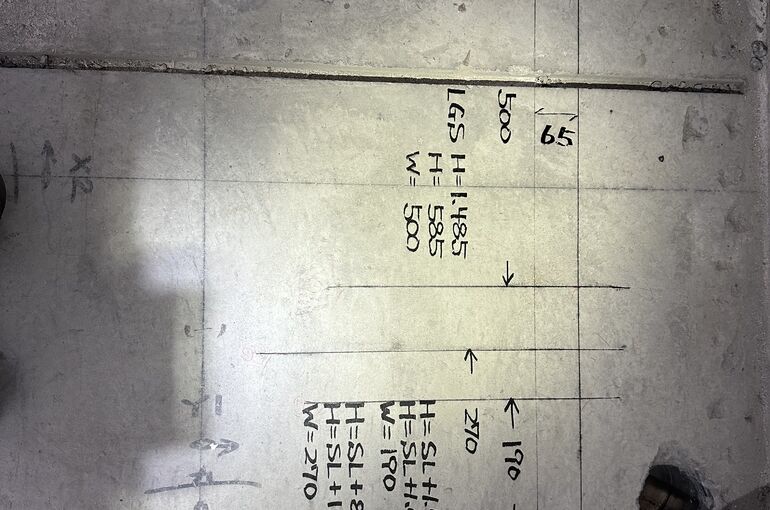 65
500
LGS H=1.485
H= 585
W= 500
X2
190
270
H=SL+1.
H=SL+1.
W=190
H=SL+8
H=SL+1
W=270